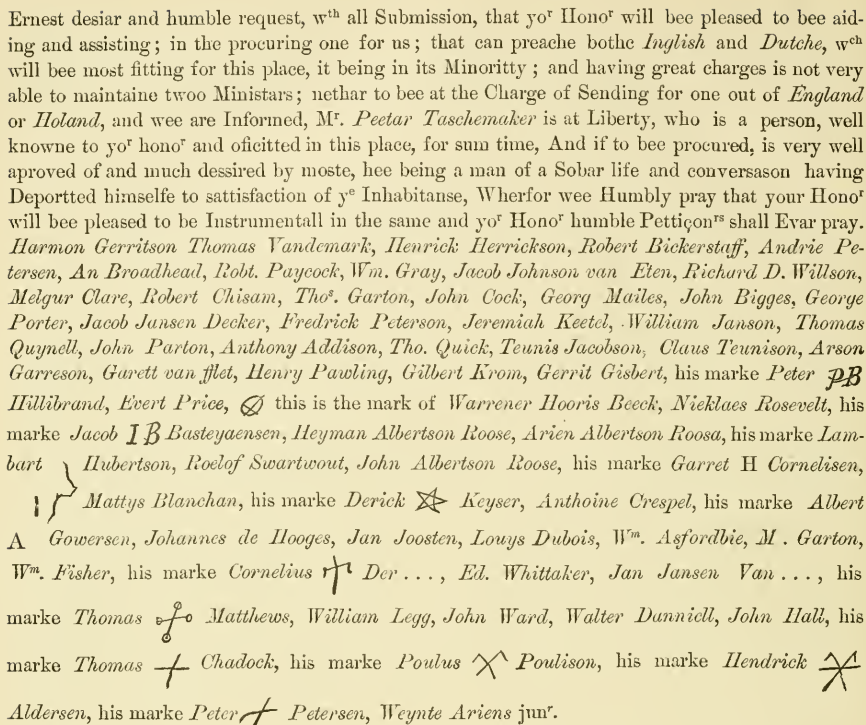 Ernest desiar and humble request, wth all Submission, that yor Honor will bee pleased to bee aid-
ing and assisting; in the procuring one for us; that can preache bothe Inglish and Dutche, wch
will bee most fitting for this place, it being in its Minoritty; and having great charges is not very
able to maintaine twoo Ministars; nethar to bee at the Charge of Sending for one out of England
or Holand, and wee are Informed, Mr. Peetar Taschemaker is at Liberty, who is a person, well
knowne to yor honor and oficitted in this place, for sum time, And if to bee procured, is very well
aproved of and much dessired by moste, hee being a man of a Sobar life and conversason having
Deportted himselfe to sattisfaction of ye Inhabitanse, Wherfor wee Humbly pray that your Honor
will bee pleased to be Instrumentall in the same and yor Honor humble Pettiçonrs shall Evar pray.
Harmon Gerritson Thomas Vandemark, Henrick Herrickson, Robert Bickerstaff, Andrie Pe-
tersen, An Broadhead, Robt. Paycock, Wm. Gray, Jacob Johnson van Eten, Richard D. Willson,
Melgur Clare, Robert Chisam, Thos. Garton, John Cock, Georg Mailes, John Bigges, George
Porter, Jacob Jansen Decker, Fredrick Peterson, Jeremiah Keetel, William Janson, Thomas
Quynell, John Parton, Anthony Addison, Tho. Quick, Teunis Jacobson, Claus Teunison, Arson
Garreson, Garett van fflet, Henry Pawling, Gilbert Krom, Gerrit Gisbert, his marke Peter PB
Hillibrand, Evert Price, this is the mark of Warrener Hooris Beeck, Nieklaes Rosevelt, his
marke Jacob I B Basteyaensen, Heyman Albertson Roose, Arien Albertson Roosa, his marke Lam-
bart Hubertson, Roelof Swartwout, John Albertson Roose, his marke Garret H Cornelisen,
Mattys Blanchan, his marke Derick Keyser, Anthoine Crespel, his marke Albert
A Gowersen, Johannes de Hooges, Jan Joosten, Louys Dubois, Wm. Asfordbie, M. Garton,
Wm. Fisher, his marke Cornelius Der ..., Ed. Whittaker, Jan Jansen Van ..., his
marke Thomas Matthews, William Legg, John Ward, Walter Danniell, John Hall, his
marke Thomas Chadock, his marke Poulus Poulison, his marke Hendrick
Aldersen, his marke Peter Petersen, Weynte Ariens junr.